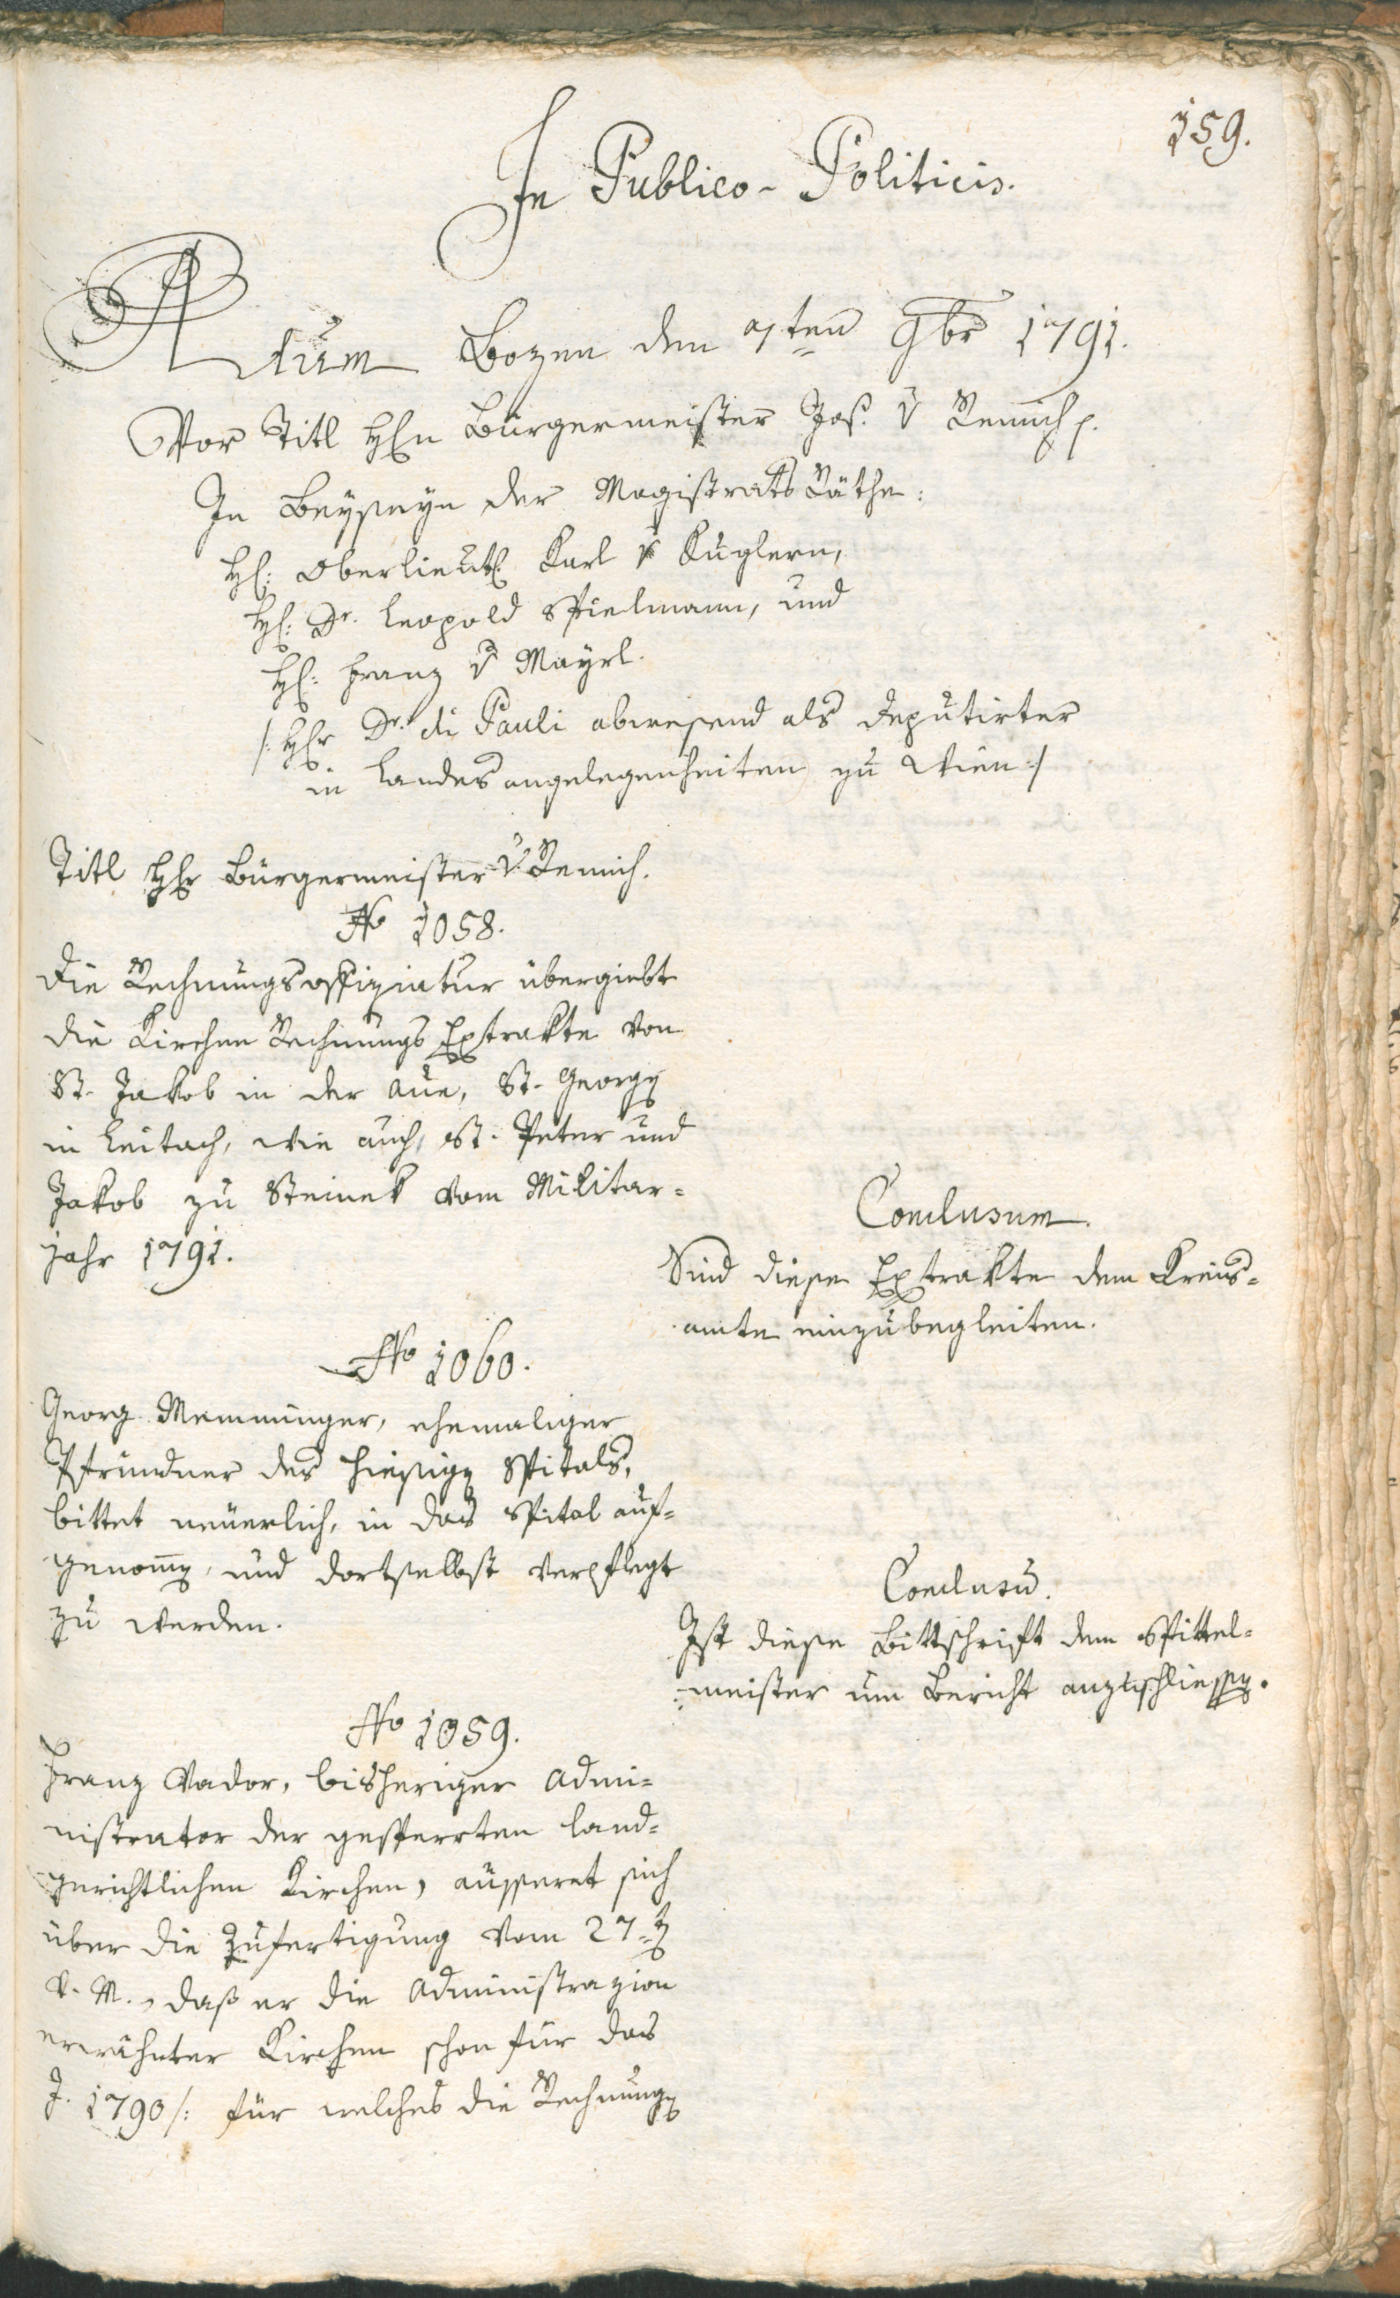 159.
In Publico-Politicis.
Actum Bozen den 7ten 9br 1791.
Vor Titl Hrn Bürgermeister Jos. v Remich p.
In Beyseyn der Magistrats Räthe:
Hr: Oberlieut. Karl v Kuglern,
Hr: Dr. Leopold Spielmann, und
Hr: Franz v Mayrl.
/: Hr Dr. di Pauli abwesend als Deputirter
in Landesangelegenheiten zu Wien :/
Titl Hr Bürgermeister v. Remich.
No 1058.
Die Rechnungsoffiziatur übergiebt
die Kirchen Rechnungs Extrakte von
St. Jakob in der Aue, St. Georgen
in Leitach, wie auch, St. Peter und
Jakob zu Steinek vom Militar=
jahr 1791.
Conclusum.
Sind diese Extrakte dem Kreis=
amte einzubegleiten.
No 1060.
Georg Memminger, ehemaliger
Pfründner des hiesigen Spitals,
bittet neuerlich, in das Spital auf=
genommen, und dortselbst verpflegt
zu werden.
Conclusū.
Ist diese Bittschrift dem Spittel=
meister um Bericht anzuschliessen.
No 1059.
Franz Vador, bisheriger Admi=
nistrator der gesperrten land=
gerichtlichen Kirchen, äusseret sich
über die Zufertigung vom 27ten
v. M., daß er die Administrazion
erwähnter Kirchen schon für das
J. 1790 /: für welches die Rechnungen